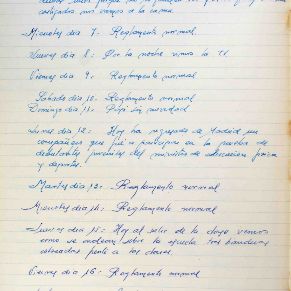 castigados nos vamos a la cama
Miercoles dia 7- Reglamento normal.
Jueves dia 8: Por la noche vimos la TV.
Viernes dia 9- Reglamento normal
Sabado dia 10- Reglamento normal
Domingo dia 11- sin novedad
Lunes dia 12: Hoy ha regresado de Madrid un
compañero que fue a participar en la prueba de
debutantes juveniles del ministerio de educacion fisica
y deportes.
Martes dia 13: Reglamento normal
Miercoles dia 14: Reglamento normal
Jueves dia 15: Hoy al salir de la clase vemos
como se sobre la tres banderas
colocadas frente a las clases.
Viernes dia 16: Reglamento normal